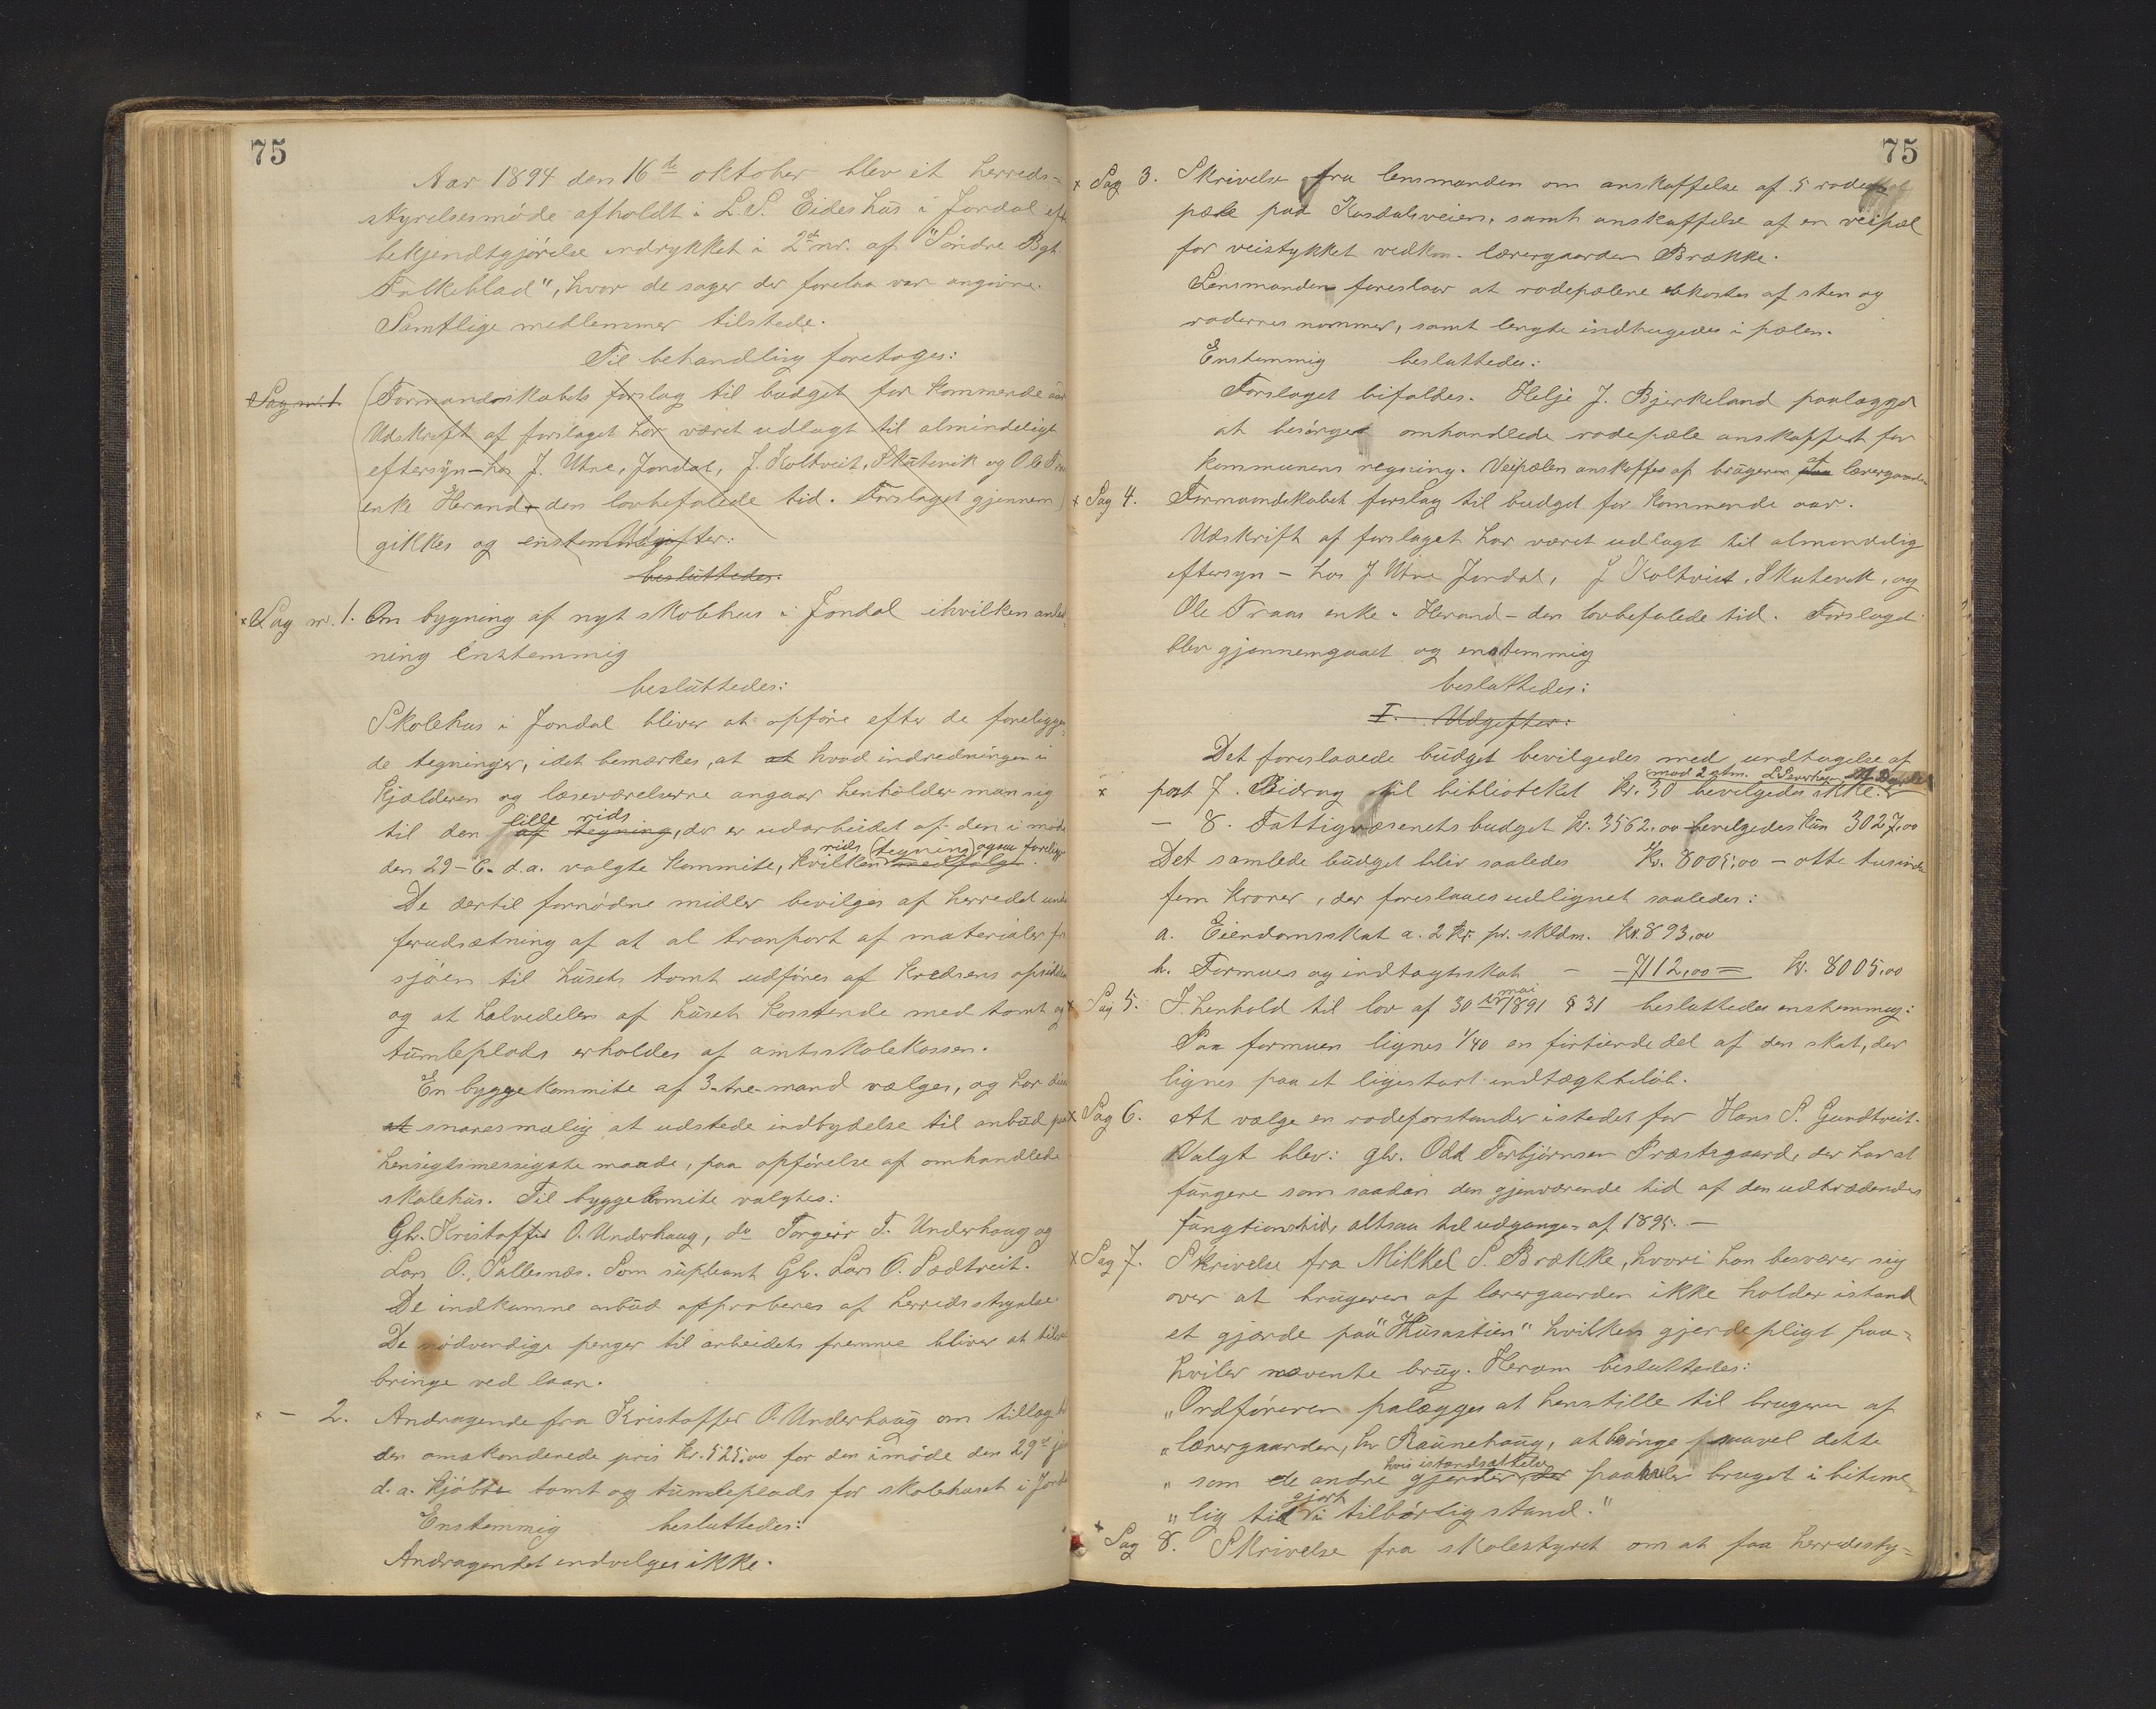 75
Aar 1894 den 16de oktober blev et herreds-
styrelsesmöde afholdt i L. S. Eides hus i Jondal
bekjendtgjörelse indrykket i 2de nr. af "Söndre Bgh.
Folkeblad", hvor de sager der forelaa var angivne.
Samtlige medlemmer tilstede.
Til behandling foretoges:
Sag nr. 1. Formandsskabets forslag til budget for kommende aar
Udskrift af forslaget har været udlagt til almindeligt
eftersyn - hos J. Utne, Jondal, J. Koltveit, Skutevik og Ole
enke Herand - den lovbefalede tid. Forslaget gjennem
gikkes og enstemmig Udgifter:
besluttedes:
x Sag nr. 1. Om bygning af nyt skolehus i Jondal ihvilken anled-
ning Enstemmig
besluttedes:
Skolehus i Jondal bliver at opföre efter de foreliggen-
de tegninger, idet bemærkes, at at hvad indredningen i
Kjælderen og læseværelserne angaar henholder man sig
til den lille rids af tegning, der er udarbeidet af den i möde
den 29-6- d.a. valgte kommite, hvilken rids (tegning) ogsaa foreligger medfølger.
De dertil fornødne midler bevilges af herredet under
forudsætning af at al tranport af materialer fra
sjöen til husets tomt udföres af kredsens opsiddere
og at halvedelen af huset kosstende med tomt og
tumleplads erholdes af amtsskolekassen.
En byggekommite af 3-tre-mand vælges, og har
at snaresmælig at udstede indbydelse til anbud paa
hensigtsmessigste maade, paa opförelse af omhandlede
skolehus. Til byggekomite valgtes:
Gbr. Kristoffer O. Underhaug, do Torgeir T. Underhaug og
Lars O. Sallesnæs. Som supleant Gbr. Lars O. Sædtveit.
De indkomne anbud approberes af herredsstyrelse.
De nödvendige penger til arbeidets fremme bliver at tilveie
bringe ved laan.
x - 2. Andragende fra Kristoffer O. Underhaug om tillæg
den omakonderede pris kr. 525,00 for den i möde den 29de
d.a. kjöbte tomt og tumleplads for skolehuset i Jondal
Enstemmig besluttedes:
Andragendet indvilges ikke.
75
x Sag 3. Skrivelse fra lensmanden om anskaffelse af 5 rode
pæle paa Krosdalsveien, samt anskaffelse af en veipæl
for veistykket vedkom. lærergaarden Brække.
Lensmanden foreslaar at rodepælene bekostes af sten og
rodernes nummer, samt lengde indhugedes i pælen.
Enstemmig besluttedes:
Forslaget bifaldes. Helje J. Bjerkeland paalægges
at besörget omhandlede rodepæle anskaffet for
kommunens regning. Veipælen anskaffes af brugeren af lærergaarden
x Sag 4. Formandskabet forslag til budget for kommende aar.
Udskrift af forslaget har været udlagt til almendelig
eftersyn - hos J Utne Jondal, J Koltveit, Skutevik, og
Ole Traas enke i Herand - den lovbefalede tid. Forslaget
blev gjennemgaaet og enstemmig
besluttedes:
I. Udgifter:
Det foreslaaede budget bevilgedes med undtagelse af
x post 7. Bidrag til biblioteket kr. 30 bevilgedes ikke. mod 2 stm.
- 8. Fattigvæsenets budget kr. 3562.00 bevilgedes kun 3027,00
Det samlede budget bliv saaledes Kr. 8005,00 - otte tusinde
fem kroner, der foreslaaes udlignet saaledes:
a. Eiendomsskat a. 2 kr. pr. skldm. kr. 893,00
b. Formues og indtægtsskat - 7112,00 = kr. 8005,00
x Sag 5. I henhold til lov af 30 mai 1891 § 31 besluttedes enstemmig:
Paa formuen lignes 1/40 en firtiende del af den skat, der
lignes paa et ligestort indtægtbelöb.
x Sag 6. At vælge en rodeforstander istedet for Hans S. Gundtveit.
Valgt blev: gbr. Odd Torbjörnsen Præstegaard, der har at
fungere som saadan den gjenværende tid af den udtrædendes
fungtionstid, altsaa til udgangen af 1895. -
x Sag 7. Skrivelse fra Mikkel S. Brække, hvori han besværer sig
over at brugeren af lærergaarden ikke holder istand
et gjærde paa "Husastien" hvilken gjerdepligt paa-
hviler nævente brug. Herom besluttedes:
"Ordföreren palægges at henstille til brugeren af
"lærergaarden, hr Raunehaug, at besörge saavel dette
" som de andre gjerder, hvis istandsættelse der paahviler bruget i bitime-
" lig tid gjort i tilbörlig stand."
x Sag 8. Skrivelse fra skolestyret om at faa herredssty-